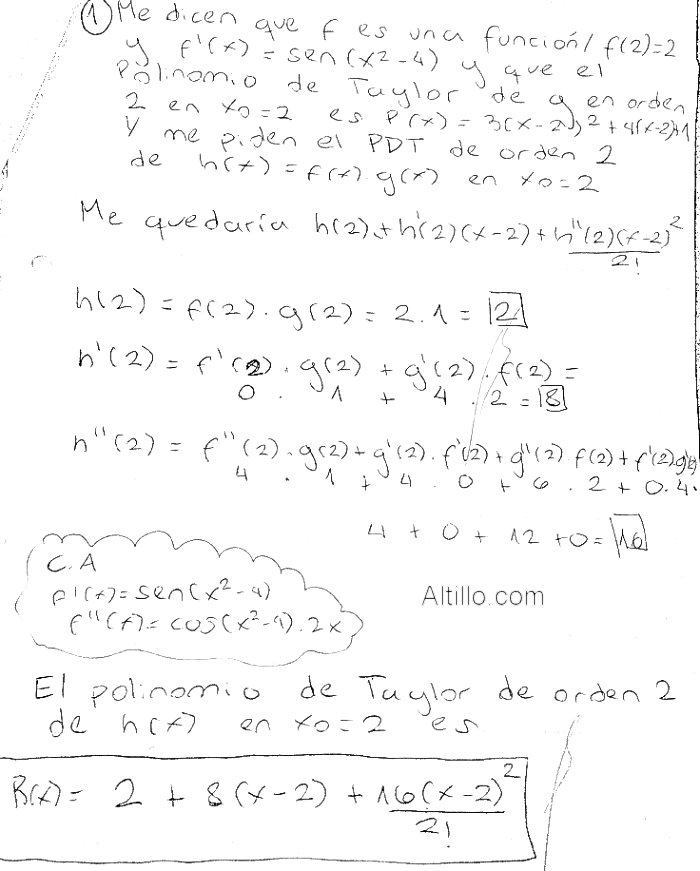 ① Me dicen que f es una función/ f(2)=2
y f'(x) = sen(x²-4) y que el
Polinomio de Taylor de g en orden
2 en x₀=2 es P(x) = 3(x-2)²+4(x-2)+1
Y me piden el PDT de orden 2
de h(x) = f(x).g(x) en x₀=2
Me quedaría h(2)+h'(2)(x-2)+h''(2)(x-2)²
2!
h(2) = f(2).g(2) = 2.1 = 2
h'(2) = f'(2).g(2)+g'(2).f(2) =
0 . 1 + 4 . 2 = 8
h''(2) = f''(2).g(2)+g'(2).f'(2)+g''(2).f(2)+f'(2).g'(2)
4 . 1 + 4 . 0 + 6 . 2 + 0.4.
4 + 0 + 12 +0= 16
C.A
f'(x)=sen(x²-4)
f''(x)=cos(x²-4).2x
Altillo.com
El polinomio de Taylor de orden 2
de h(x) en x₀=2 es
P(x)= 2 + 8(x-2) + 16(x-2)²
2!